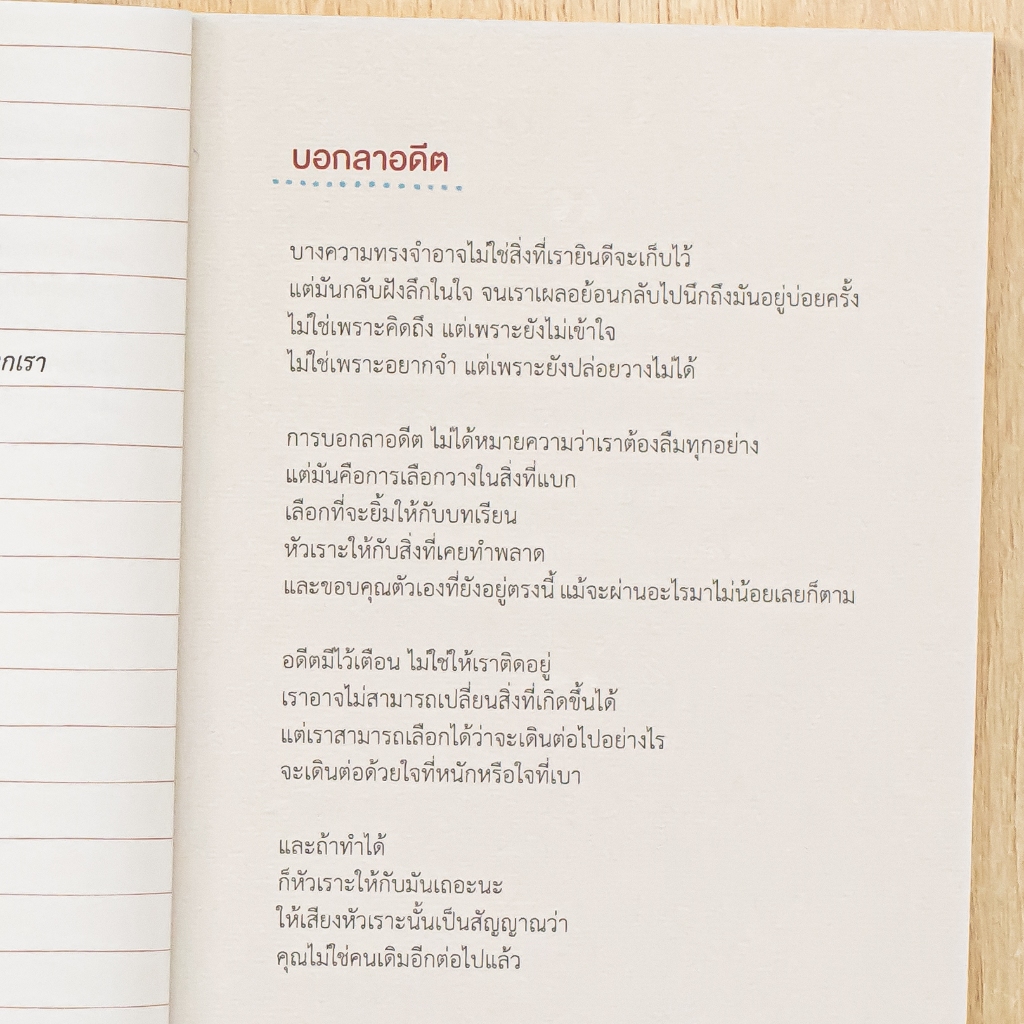 กเรา
บอกลาอดีต
บางความทรงจำอาจไม่ใช่สิ่งที่เรายินดีจะเก็บไว้
แต่มันกลับฝังลึกในใจ จนเราเผลอย้อนกลับไปนึกถึงมันอยู่บ่อยครั้ง
ไม่ใช่เพราะคิดถึง แต่เพราะยังไม่เข้าใจ
ไม่ใช่เพราะอยากจำ แต่เพราะยังปล่อยวางไม่ได้
การบอกลาอดีต ไม่ได้หมายความว่าเราต้องลืมทุกอย่าง
แต่มันคือการเลือกวางในสิ่งที่แบก
เลือกที่จะยิ้มให้กับบทเรียน
หัวเราะให้กับสิ่งที่เคยทำพลาด
และขอบคุณตัวเองที่ยังอยู่ตรงนี้ แม้จะผ่านอะไรมาไม่น้อยเลยก็ตาม
อดีตมีไว้เตือน ไม่ใช่ให้เราติดอยู่
เราอาจไม่สามารถเปลี่ยนสิ่งที่เกิดขึ้นได้
แต่เราสามารถเลือกได้ว่าจะเดินต่อไปอย่างไร
จะเดินต่อด้วยใจที่หนักหรือใจที่เบา
และถ้าทำได้
ก็หัวเราะให้กับมันเถอะนะ
ให้เสียงหัวเราะนั้นเป็นสัญญาณว่า
คุณไม่ใช่คนเดิมอีกต่อไปแล้ว